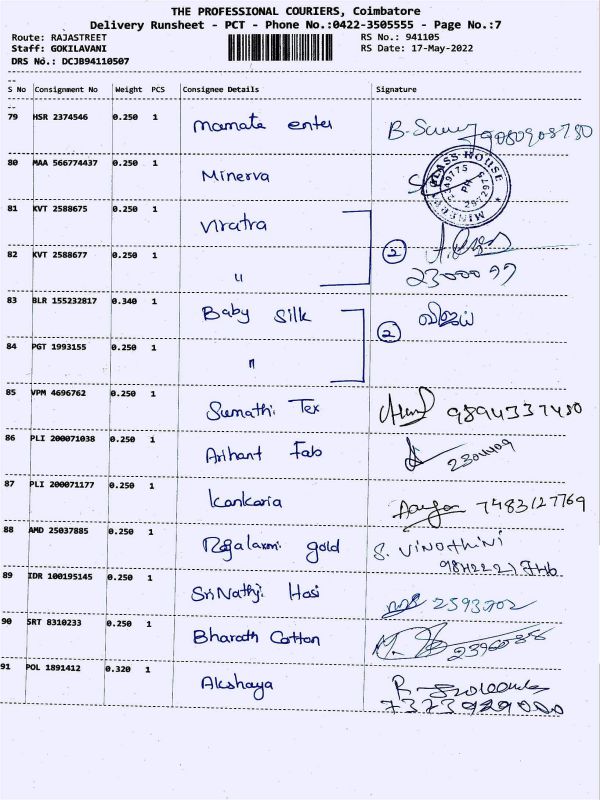 THE PROFESSIONAL COURIERS, Coimbatore
Delivery Runsheet - PCT - Phone No.:0422-3505555 - Page No.:7
Route: RAJASTREET RS No.: 941105
Staff: GOKILAVANI RS Date: 17-May-2022
DRS No.: DCJB94110507
S No Consignment No Weight PCS Consignee Details Signature
79 HSR 2374546 0.250 1 mamata enter
80 MAA 566774437 0.250 1 Minerva
81 KVT 2588675 0.250 1 Viratra
82 KVT 2588677 0.250 1 " 2
83 BLR 155232817 0.340 1 Baby Silk விஜய்
84 PGT 1993155 0.250 1 " 2
85 VPM 4696762 0.250 1 Sumathi Tex
86 PLI 200071038 0.250 1 Arihant Fab
87 PLI 200071177 0.250 1 Kankaria 7483127769
88 AMD 25037885 0.250 1 Rajalaxmi gold S. VINOTHINI
89 IDR 100195145 0.250 1 Sri Nathji Hosi
90 SRT 8310233 0.250 1 Bharath Cotton
91 POL 1891412 0.320 1 Akshaya
7373929000